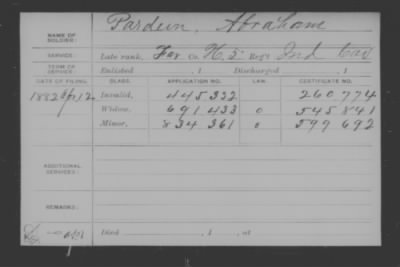 NAME OF SOLDIER: Pardun, Abraham
SERVICE: Late rank, Far Co. H, 5 Reg't Ind Cav
TERM OF SERVICE: Enlisted , 1 Discharged , 1
DATE OF FILING. CLASS. APPLICATION NO. LAW. CERTIFICATE NO.
1882 Apr 12 Invalid, 445332 260774
Widow, 691433 o 545841
Minor, 834361 o 599692
ADDITIONAL SERVICES:
REMARKS:
Died , 1 , at